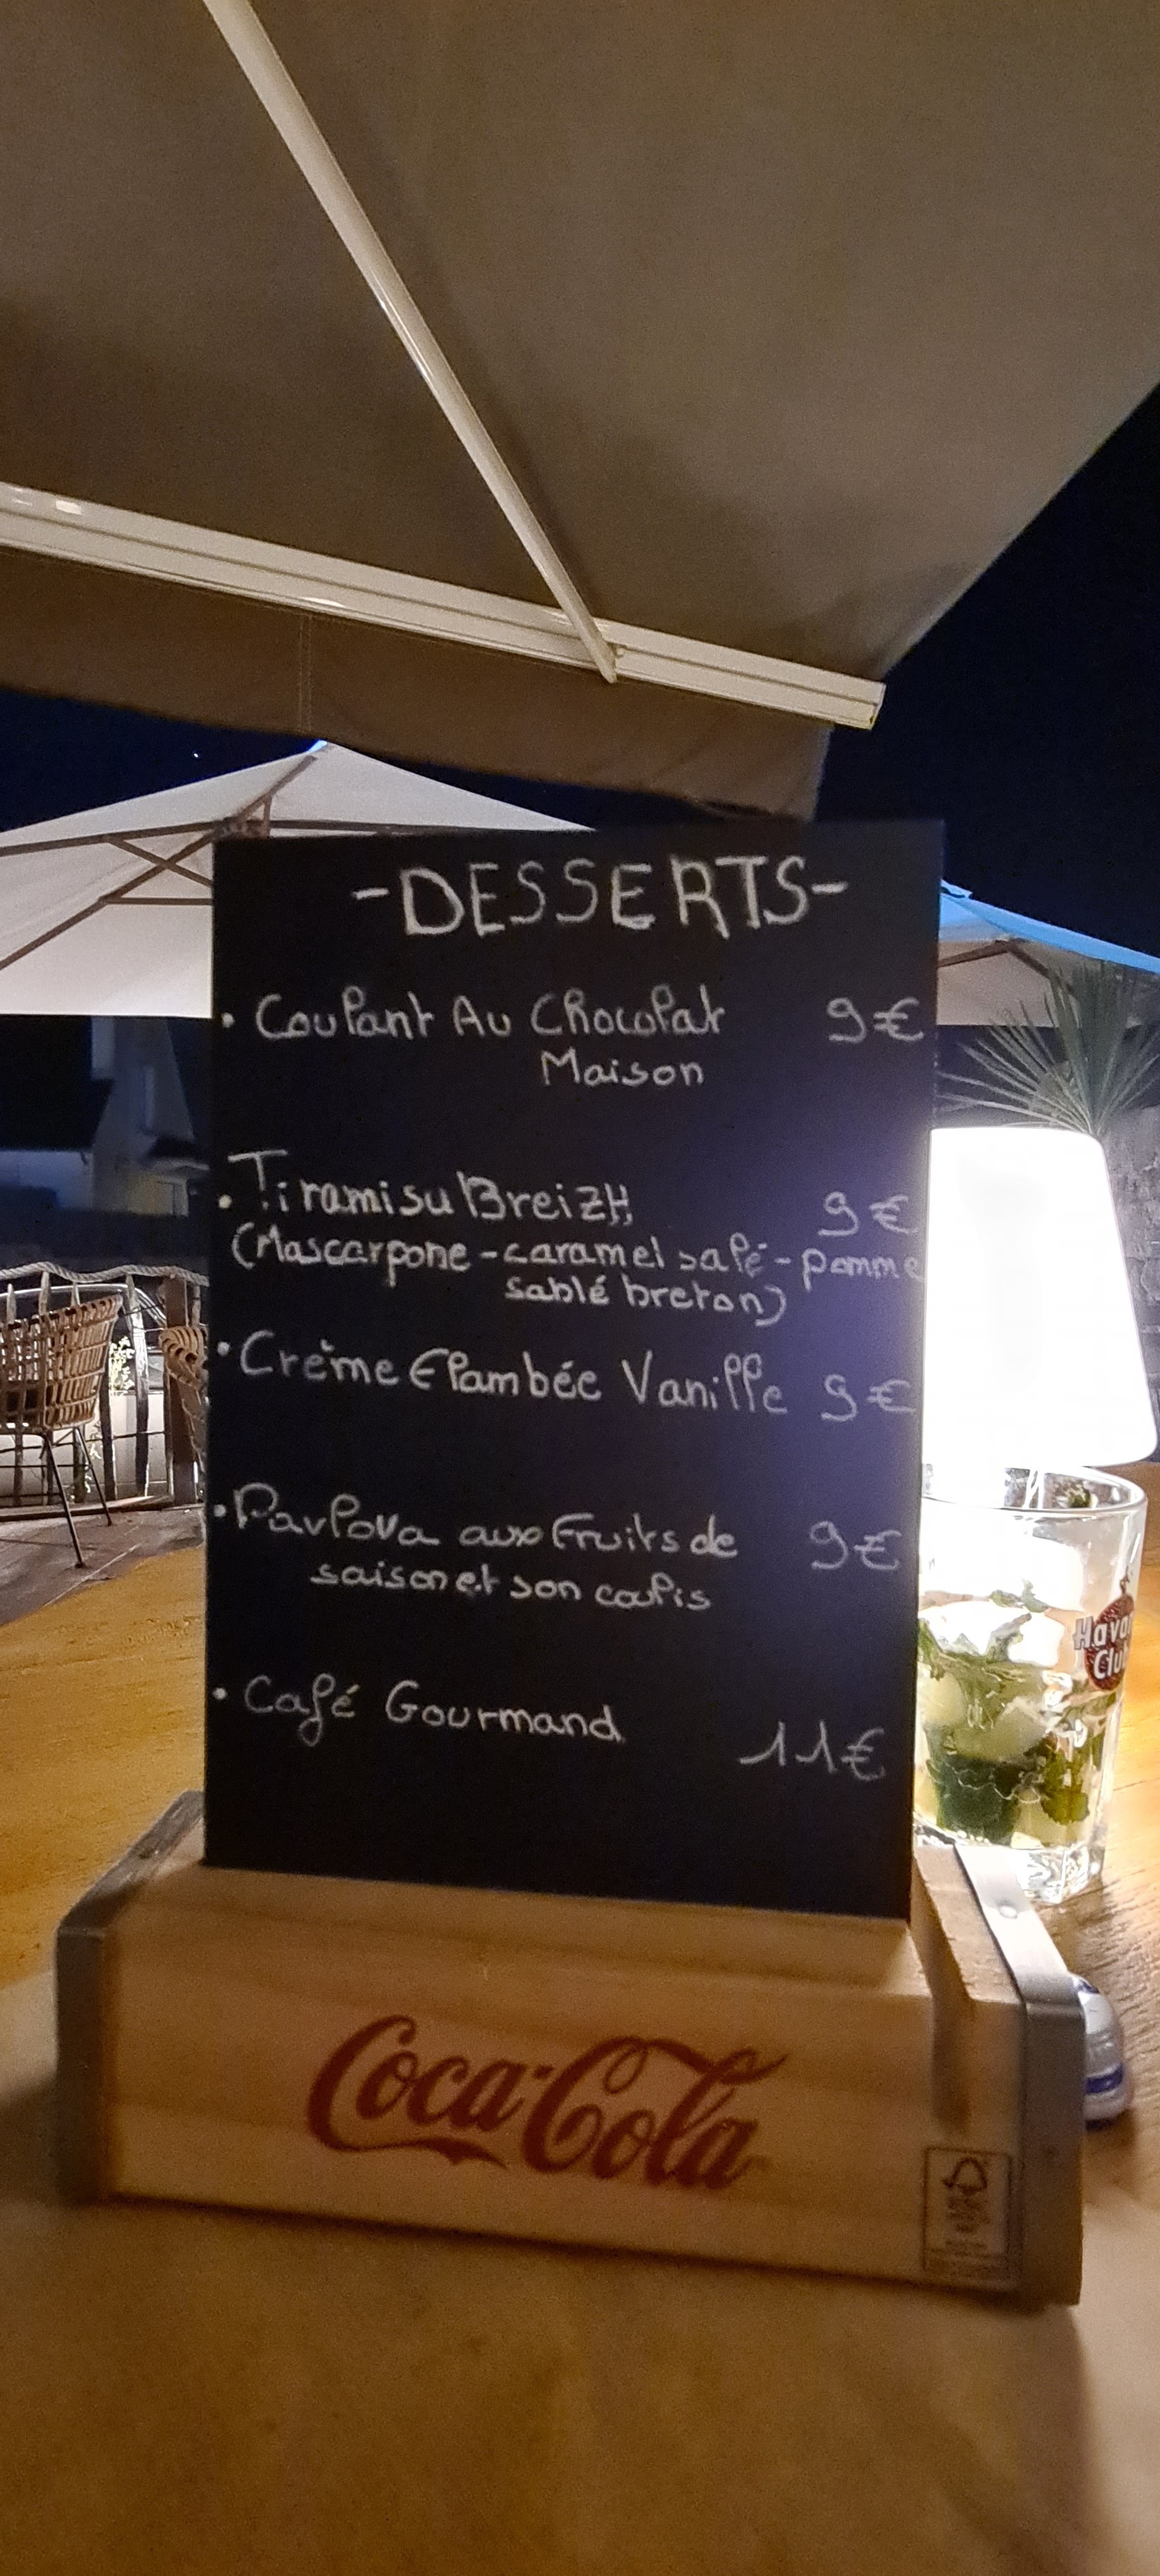 -DESSERTS-
• Coulant Au Chocolat 9€
Maison
• Tiramisu BreizH 9€
(Mascarpone - caramel salé - pomme
sablé breton)
• Crème Flambée Vanille 9€
• Pavlova aux Fruits de 9€
saison et son coulis
• Café Gourmand 11€
Havana
Club
Coca-Cola